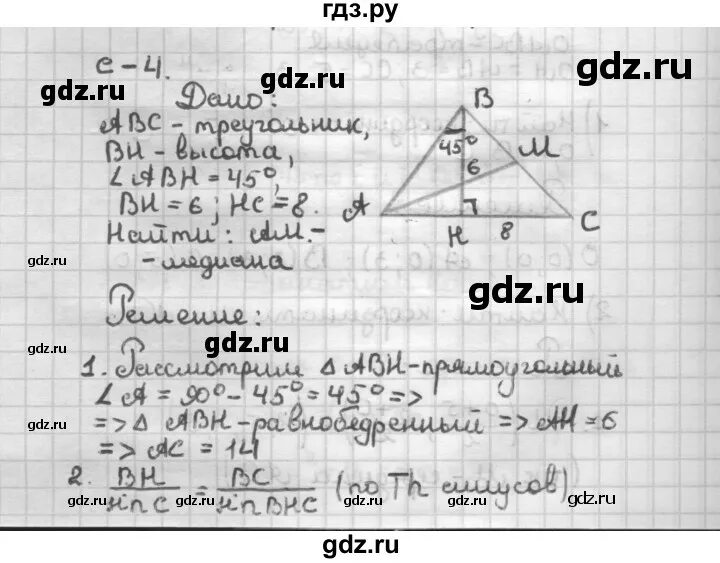 гдз.ру
с-4.
Дано:
ABC - треугольник,
BH - высота,
∠ABH = 45°,
BH = 6; HC = 8.
Найти: AM. -
- медиана
B
45°
M
6
A
H
8
C
gdz.ru
gdz.ru
gdz.ru
Решение:
1. Рассмотрим △ ABH - прямоугольный
gdz.ru
gdz.ru
∠A = 90° - 45° = 45° =>
=> △ ABH - равнобедренный => AH = 6
gdz.ru
gdz.ru
=> AC = 14
2. BH/sin C = BC/sin BHC (по Th синусов)
gdz.ru
gdz.ru
gdz.ru